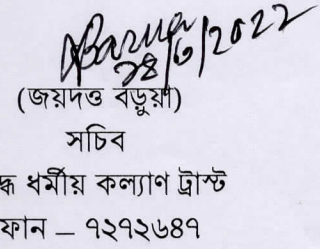 Barua
28/6/2022
(জয়দত্ত বড়ুয়া)
সচিব
দ্ধ ধর্মীয় কল্যাণ ট্রাস্ট
ফোন – ৭২৭২৬৪৭